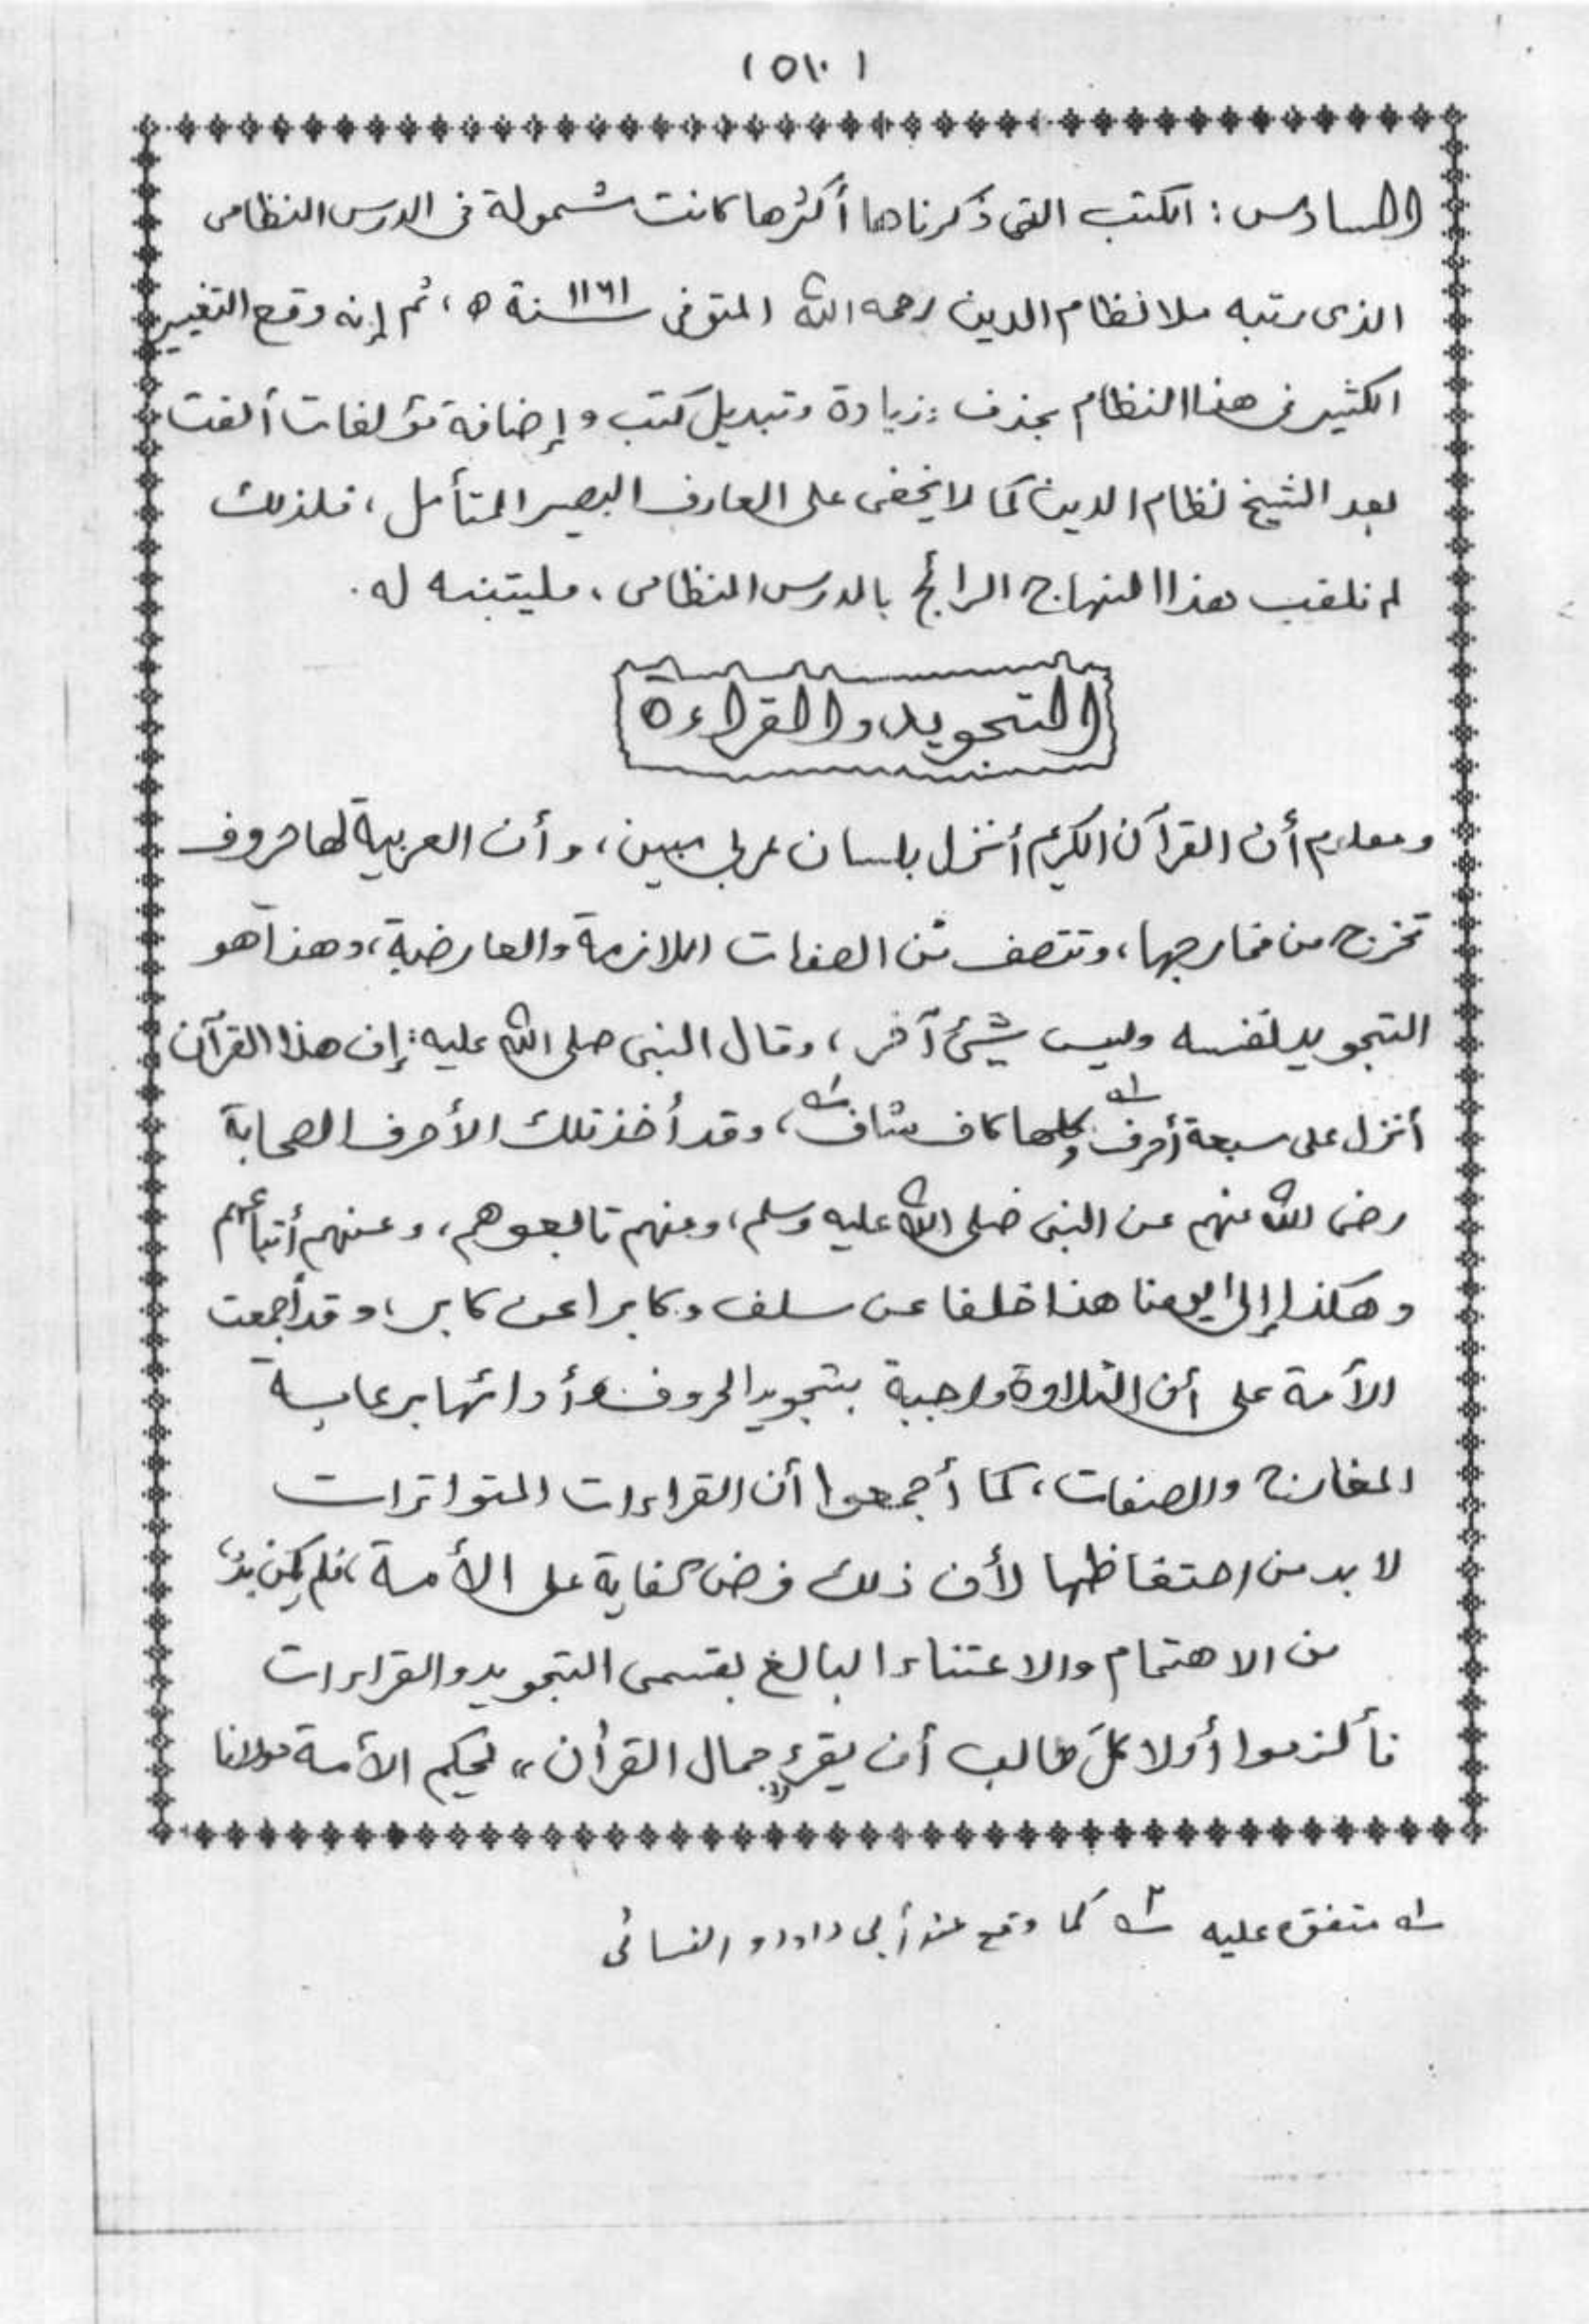 (٥١٠)
السادس: الكتب التى ذكرناها أكثرها كانت شمولة فى الدرس النظامى
الذى رتبه ملا نظام الدين رحمه الله المتوفى ١١٦١ سنة ه، ثم إنه وقع التغيير
الكثير فى هذا النظام بحذف وزيادة وتبديل كتب وإضافة مؤلفات ألفت
بعد الشيخ نظام الدين كما لا يخفى على العارف البصير المتأمل، فلذلك
لم نلقب هذا المنهاج الرائج بالدرس النظامى، فليتنبه له.
التجويد والقراءة
ومعلوم أن القرآن الكريم أنزل بلسان عربي مبين، وأن العربية لها حروف
تخرج من مخارجها، وتتصف من الصفات اللازمة والعارضية، وهذا هو
التجويد نفسه وليس شيئ آخر، وقال النبى صلى الله عليه: إن هذا القرآن
أنزل على سبعة أحرف وكلها كاف شاف، وقد أخذ تلك الأحرف الصحابة
رضى الله عنهم عن النبى صلى الله عليه وسلم، ومنهم تابعوهم، وعنهم أتباعهم
وهكذا إلى يومنا هذا خلفا عن سلف وكابرا عن كابر، وقد أجمعت
الأمة على أن التلاوة واجبة بتجويد الحروف وأدائها برعاية
المخارج والصفات، كما أجمعوا أن القراءات المتواترات
لا بد من احتفاظها لأن ذلك فرض كفاية على الأمة، فلم يكن بدّ
من الاهتمام والاعتناء البالغ بقسمى التجويد والقراءات
فألزموا أولا كلَ طالب أن يقرء "جمال القرأن" لحكيم الأمة مولانا
له متفق عليه ٢ه كما وقع عند أبى داود والنسائى